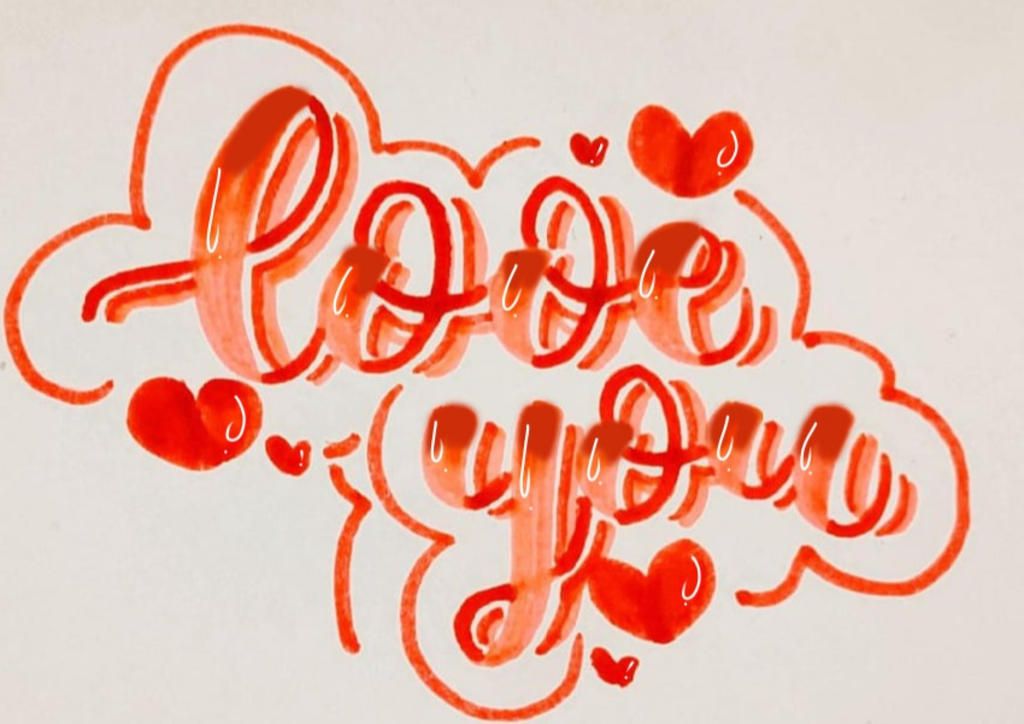 looe
you